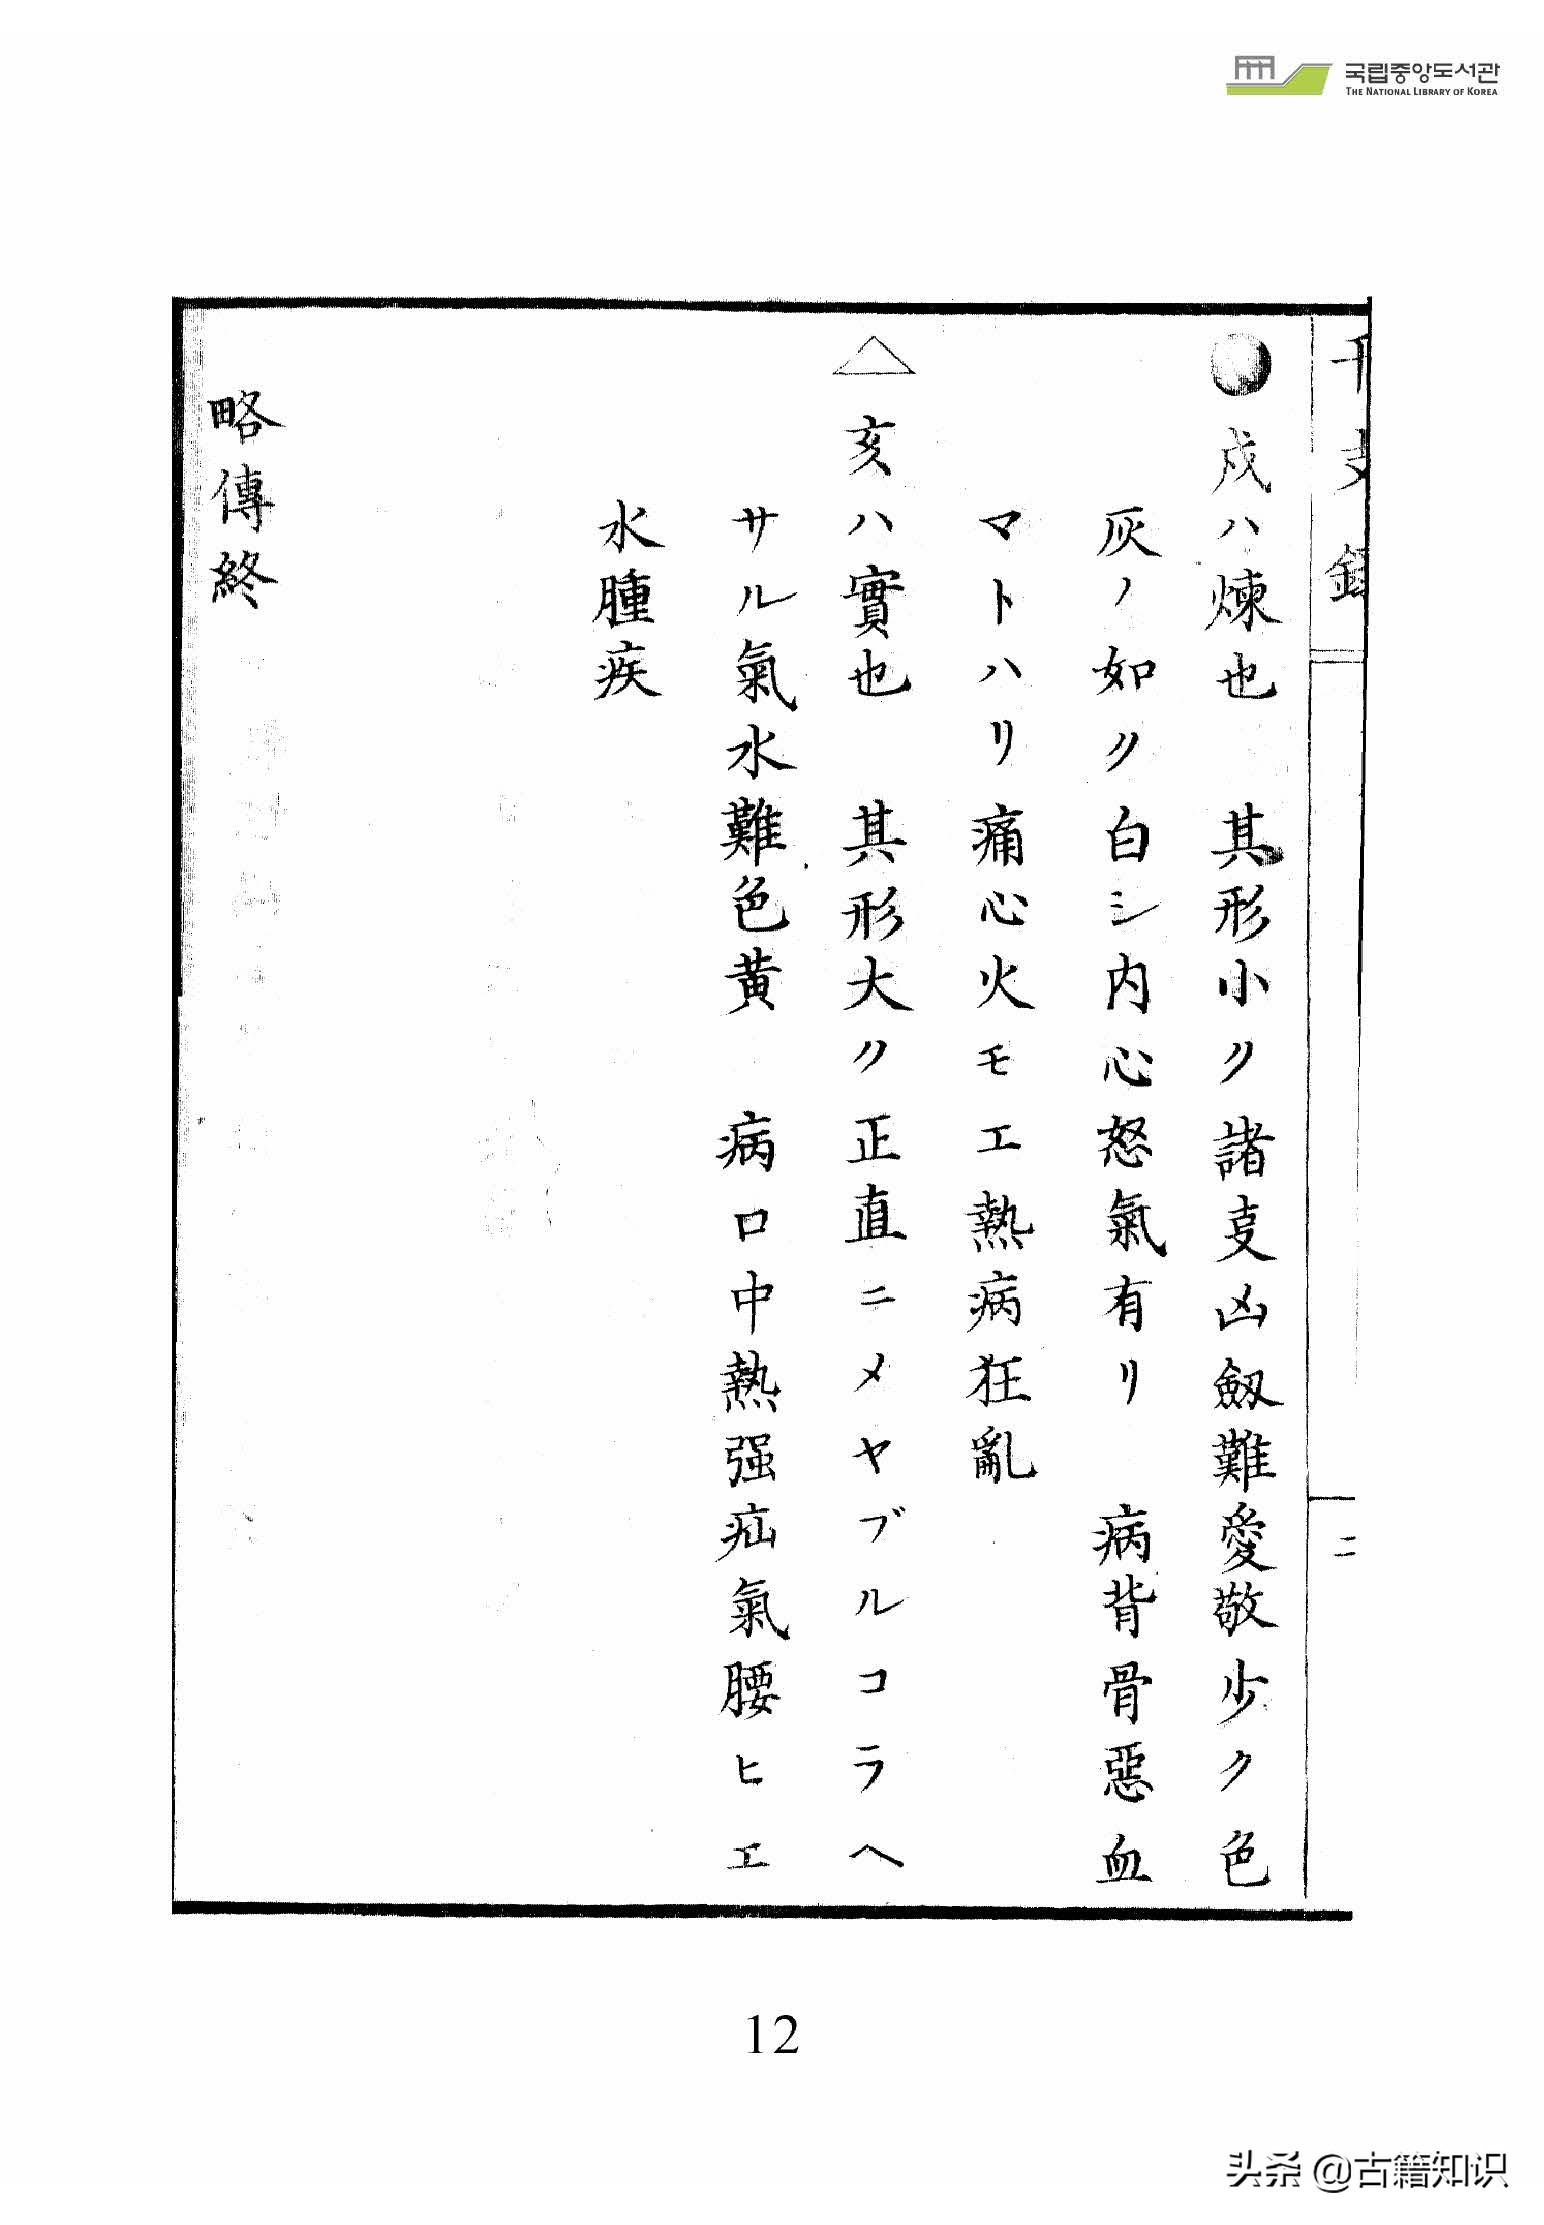 국립중앙도서관
THE NATIONAL LIBRARY OF KOREA
干支錄
二
戍ハ煉也 其形小ク諸支凶劔難愛敬少ク色
灰ノ如ク白シ内心怒氣有リ 病背骨惡血
マトハリ痛心火モエ熱病狂亂
亥ハ實也 其形大ク正直ニメヤブルコラヘ
サル氣水難色黃 病口中熱强疝氣腰ヒエ
水腫疾
略傳終
12
头条 @古籍知识